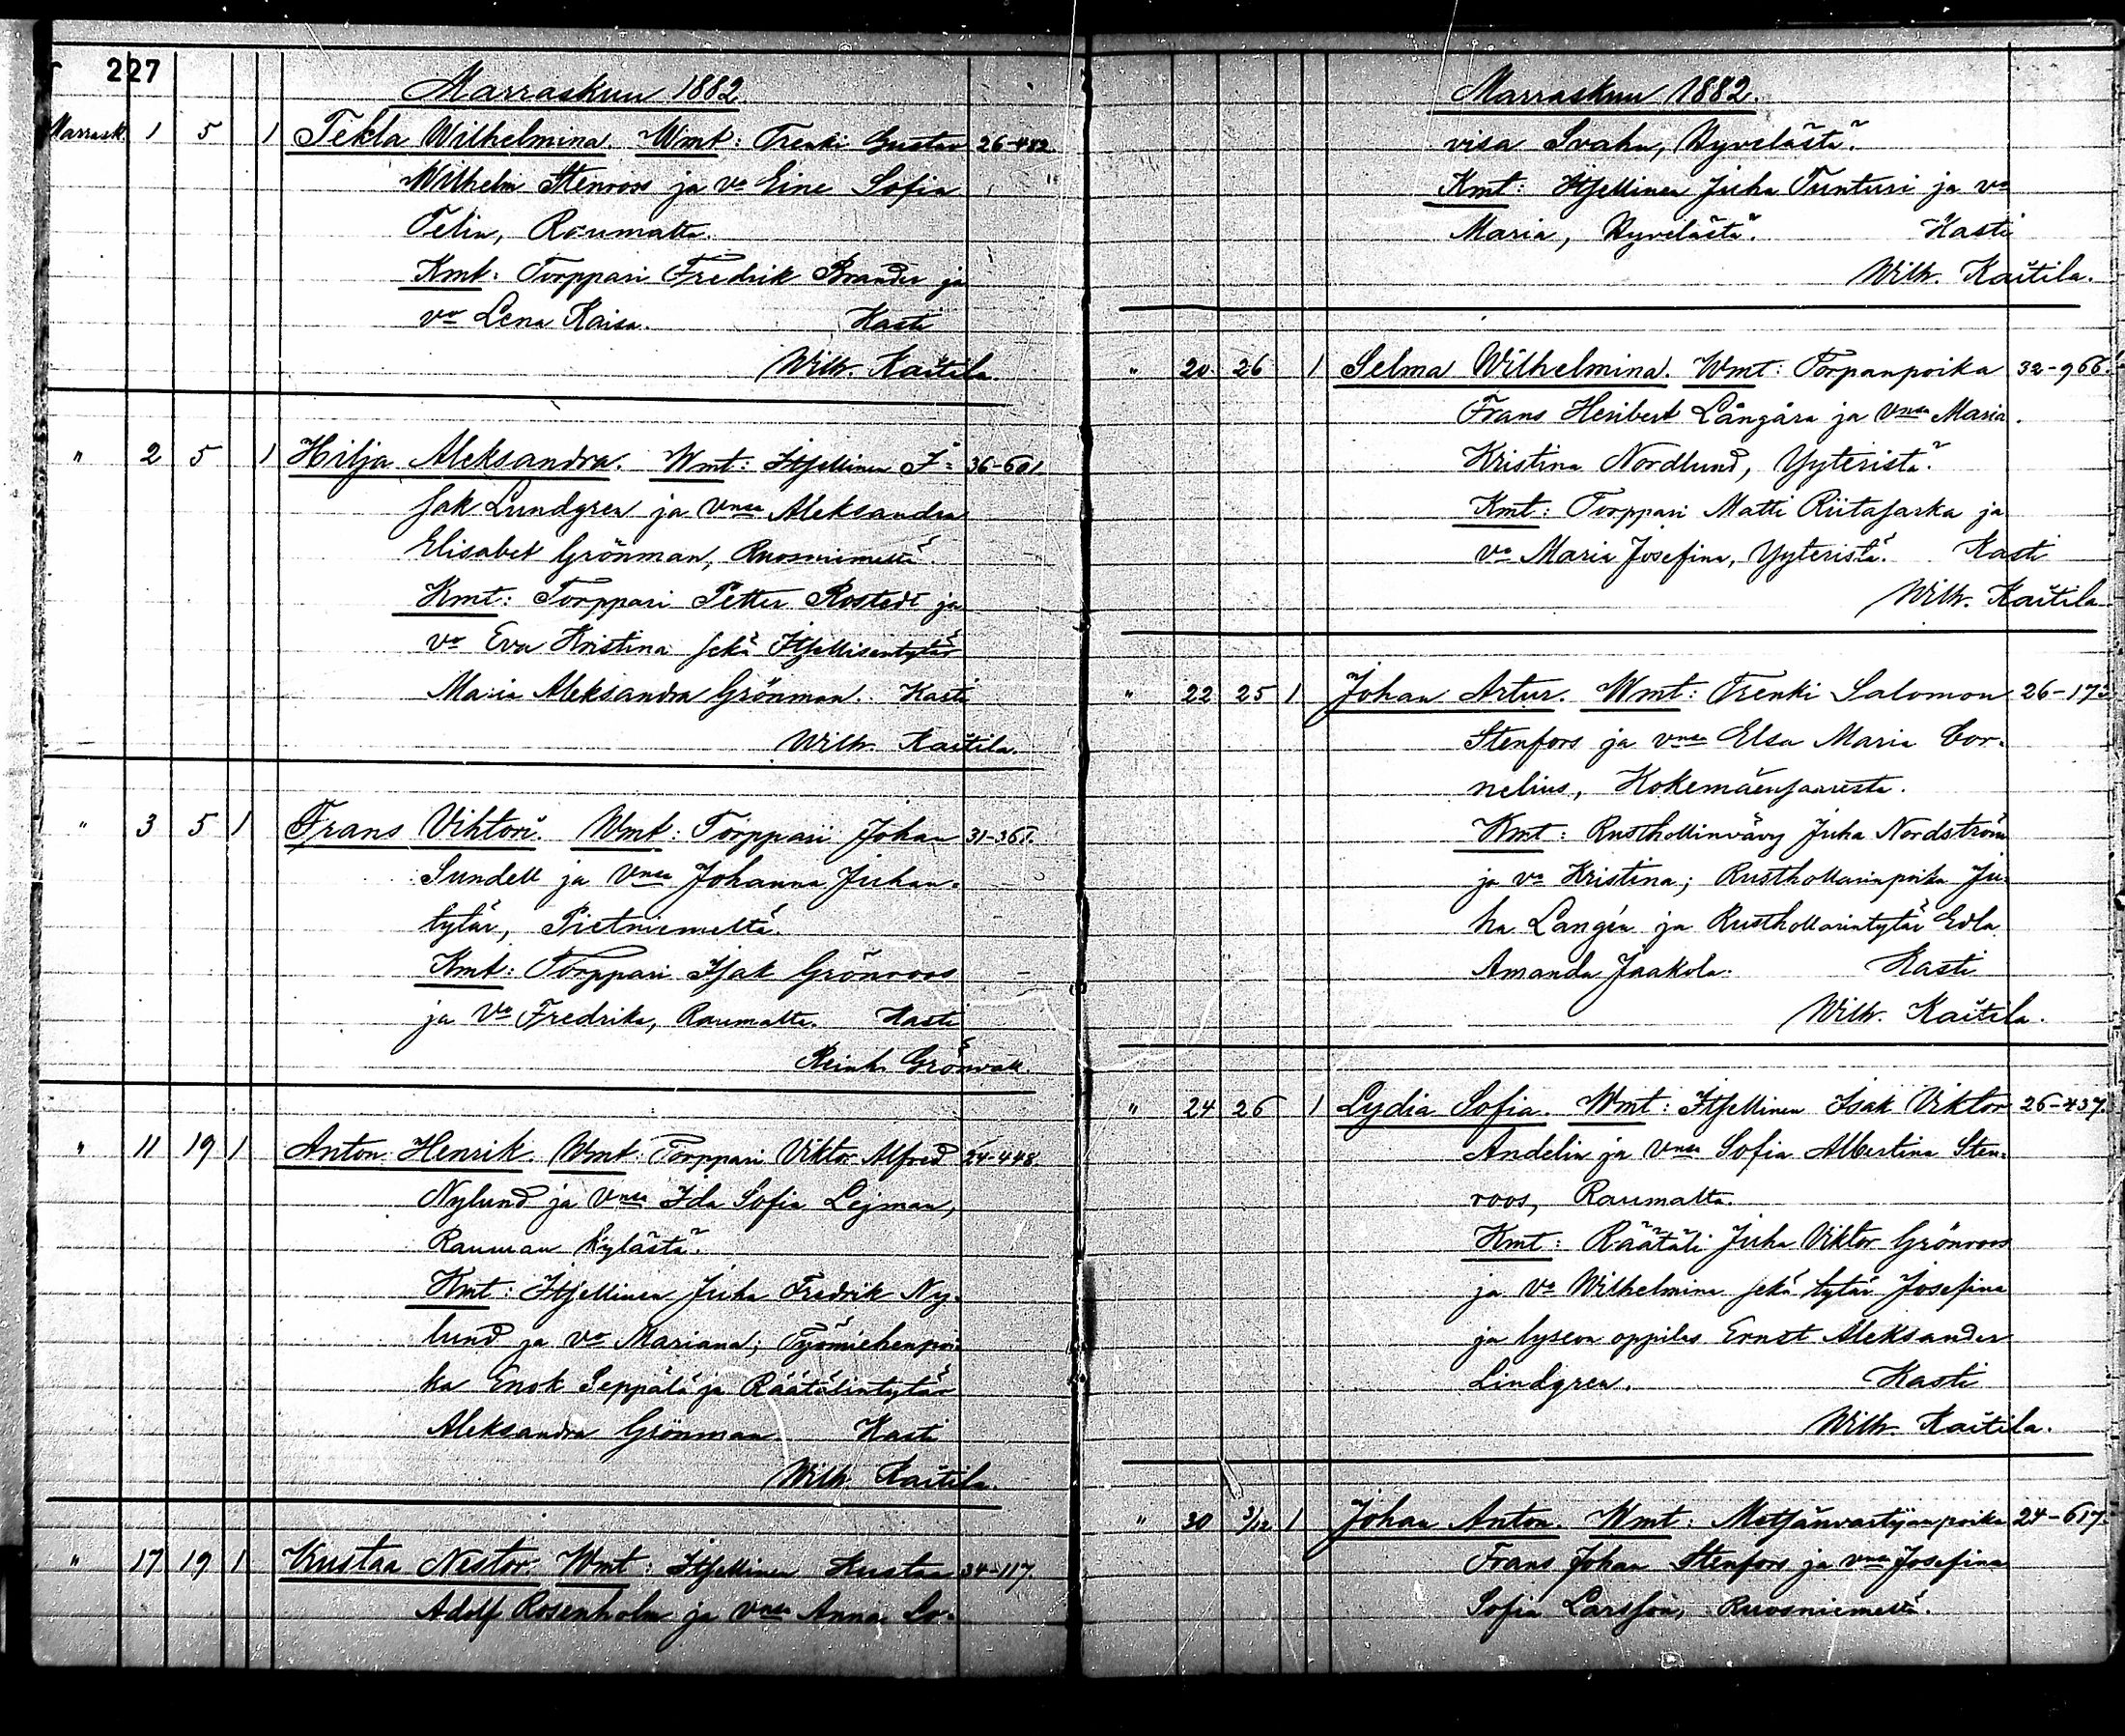 227
Marraskuu 1882.
Marrask. 1 5 1 Tekla Wilhelmina. Wmt: Trenki Gustav 26-482
Wilhelm Stenroos ja vo Eine Sofia
Telin, Raumalta.
Kmt: Torppari Fredrik Brander ja
vo Lena Kaisa. Kasti
Wilh. Kaitila.
" 2 5 1 Hilja Aleksandra. Wmt: Itsellinen I= 36-601
sak Lundgren ja vmsa Aleksandra
Elisabet Grönman, Ruosniemeltä.
Kmt: Torppari Petter Rostedt ja
vo Eva Kristina sekä Itsellisentytär
Maria Aleksandra Grönman. Kasti
Wilh. Kaitila.
" 3 5 1 Frans Vihtori. Wmt: Torppari Johan 31-367.
Sundell ja vmsa Johanna Juhan-
tytär, Pietniemeltä.
Kmt: Torppari Isak Grönroos
ja vo Fredrika, Raumalta. Kasti
Reinh. Grönvall.
" 11 19 1 Anton Henrik. Wmt: Torppari Viktor Alfred 24-448.
Nylund ja vmsa Ida Sofia Lejman,
Rauman kylästä.
Kmt: Itsellinen Juha Fredrik Ny-
lund ja vo Mariana; Työmiehenpoi-
ka Enok Seppälä ja Räätälintytär
Aleksandra Grönman Kasti
Wilh. Kaitila.
" 17 19 1 Kustaa Nestor. Wmt: Itsellinen Kustaa 34-117.
Adolf Rosenholm ja vmsa Anna Lo-
Marraskuu 1882.
visa Svahn, Hyvelästä.
Kmt: Itsellinen Juha Tunturi ja vo
Maria, Hyvelästä. Kasti
Wilh. Kaitila.
" 20 26 1 Selma Wilhelmina. Wmt: Torpanpoika 32-966.
Frans Heribert Långåra ja vmsa Maria
Kristina Nordlund, Yyteristä.
Kmt: Torppari Matti Riitasarka ja
vo Maria Josefina, Yyteristä. Kasti
Wilh. Kaitila
" 22 25 1 Johan Artur. Wmt: Trenki Salomon 26-173
Stenfors ja vmsa Elsa Maria Cor-
nelius, Kokemäensaaresta.
Kmt: Rusthollinvävy Juha Nordström
ja vo Kristina; Rusthollarinpoika Ju-
ha Langén ja Rusthollarintytär Edla
Amanda Jaakola. Kasti
Wilh. Kaitila.
" 24 26 1 Lydia Sofia. Wmt: Itsellinen Isak Viktor 26-437.
Andelin ja vmsa Sofia Albertina Sten-
roos, Raumalta.
Kmt: Räätäli Juha Viktor Grönroos
ja vo Wilhelmina sekä tytär Josefina
ja lyseon oppilas Ernst Aleksander
Lindgren. Kasti
Wilh. Kaitila.
" 30 3/12 1 Johan Anton. Wmt: Metsänvartijanpoika 24-617.
Frans Johan Stenfors ja vmsa Josefina
Sofia Larsson, Ruosniemeltä.